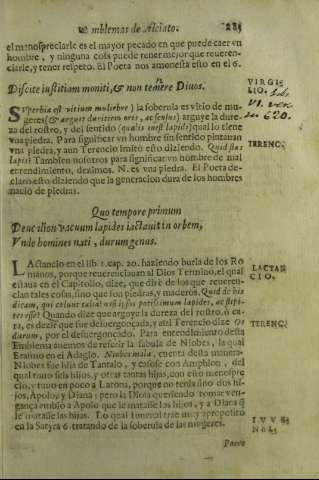 Emblemas de Alciato. 285
el menospreciarle es el mayor pecado en que puede caer vn
hombre, y ninguna cosa puede tener mejor que reueren-
ciarle, y tener respeto. El Poeta nos amonesta esto en el 6.
Discite iustitiam moniti, & non temnere Diuos.
VIRGI
LIO.
VI. ver.
620.
Superbia est vitium muliebre) la soberuia es vitio de mu-
geres (& arguit duritiem oris, ac sensus) arguye la dure-
za del rostro, y del sentido (qualis inest lapis) qual lo tiene
vna piedra. Para significar vn hombre sin sentido pintauan
vna piedra, y aun Terencio imitò esto diziendo. Quid stas
lapis? Tambien nosotros para significar vn hombre de mal
entendimiento, dezimos. N. es vna piedra. El Poeta de-
claró esto diziendo que la generacion dura de los hombres
nació de piedras.
TERENC.
Quo tempore primum
Deucalion vacuum lapides iactauit in orbem,
Vnde homines nati, durum genus.
LActancio en el lib. 1. cap. 20. haziendo burla de los Ro
manos, porque reuerenciauan al Dios Termino, el qual
estaua en el Capitolio, dize, que diré de los que reueren-
cian tales cosas, sino que son piedras, y maderos. Quid de his
dicam, qui colunt talia? nisi ipsos potissimum lapides, ac stipi-
tes esse? Quando dize que arguye la dureza del rostro, ò ca-
ra, es dezir que fue desuergonçada, y assi Terencio dize Os
durum, por el desuergonçado. Para entendimiento desta
Emblema auemos de referir la fabula de Niobes, la qual
Erasmo en el Adagio. Niobes mala, cuenta desta manera.
Niobes fue hija de Tantalo, y casose con Amphion, del
qual tuuo seis hijos, y otras tantas hijas, con esto menospre
cio, y tuuo en poco a Latona, porque no tenia sino dos hi-
jos, Apolo, y Diana; pero la Diosa queriendo tomar ven-
gança embió a Apolo que le matasse los hijos, y a Diana q̃
le matasse las hijas. Lo qual Iuuenal trae muy apropósito
en la Satyra 6. tratando de la soberuia de las mugeres.
LACTAN
CIO.
TERENC.
IVVE
NAL.
Parce